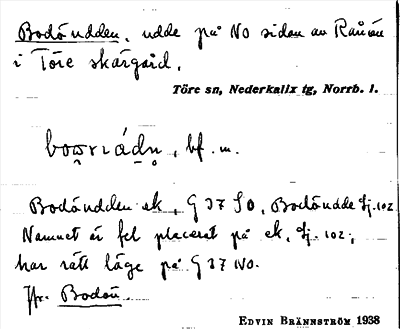 Bodöudden, udde på NO sidan av Rånön
i Töre skärgård.
Töre sn, Nederkalix tg, Norrb. l.
bf. m.
Bodöudden ek. G 37 SO, Bodöudde sj. 102
Namnet är fel placerat på ek, sj. 102;
har rätt läge på G 37 NO.
Jfr Bodön.
EDVIN BRÄNNSTRÖM 1938